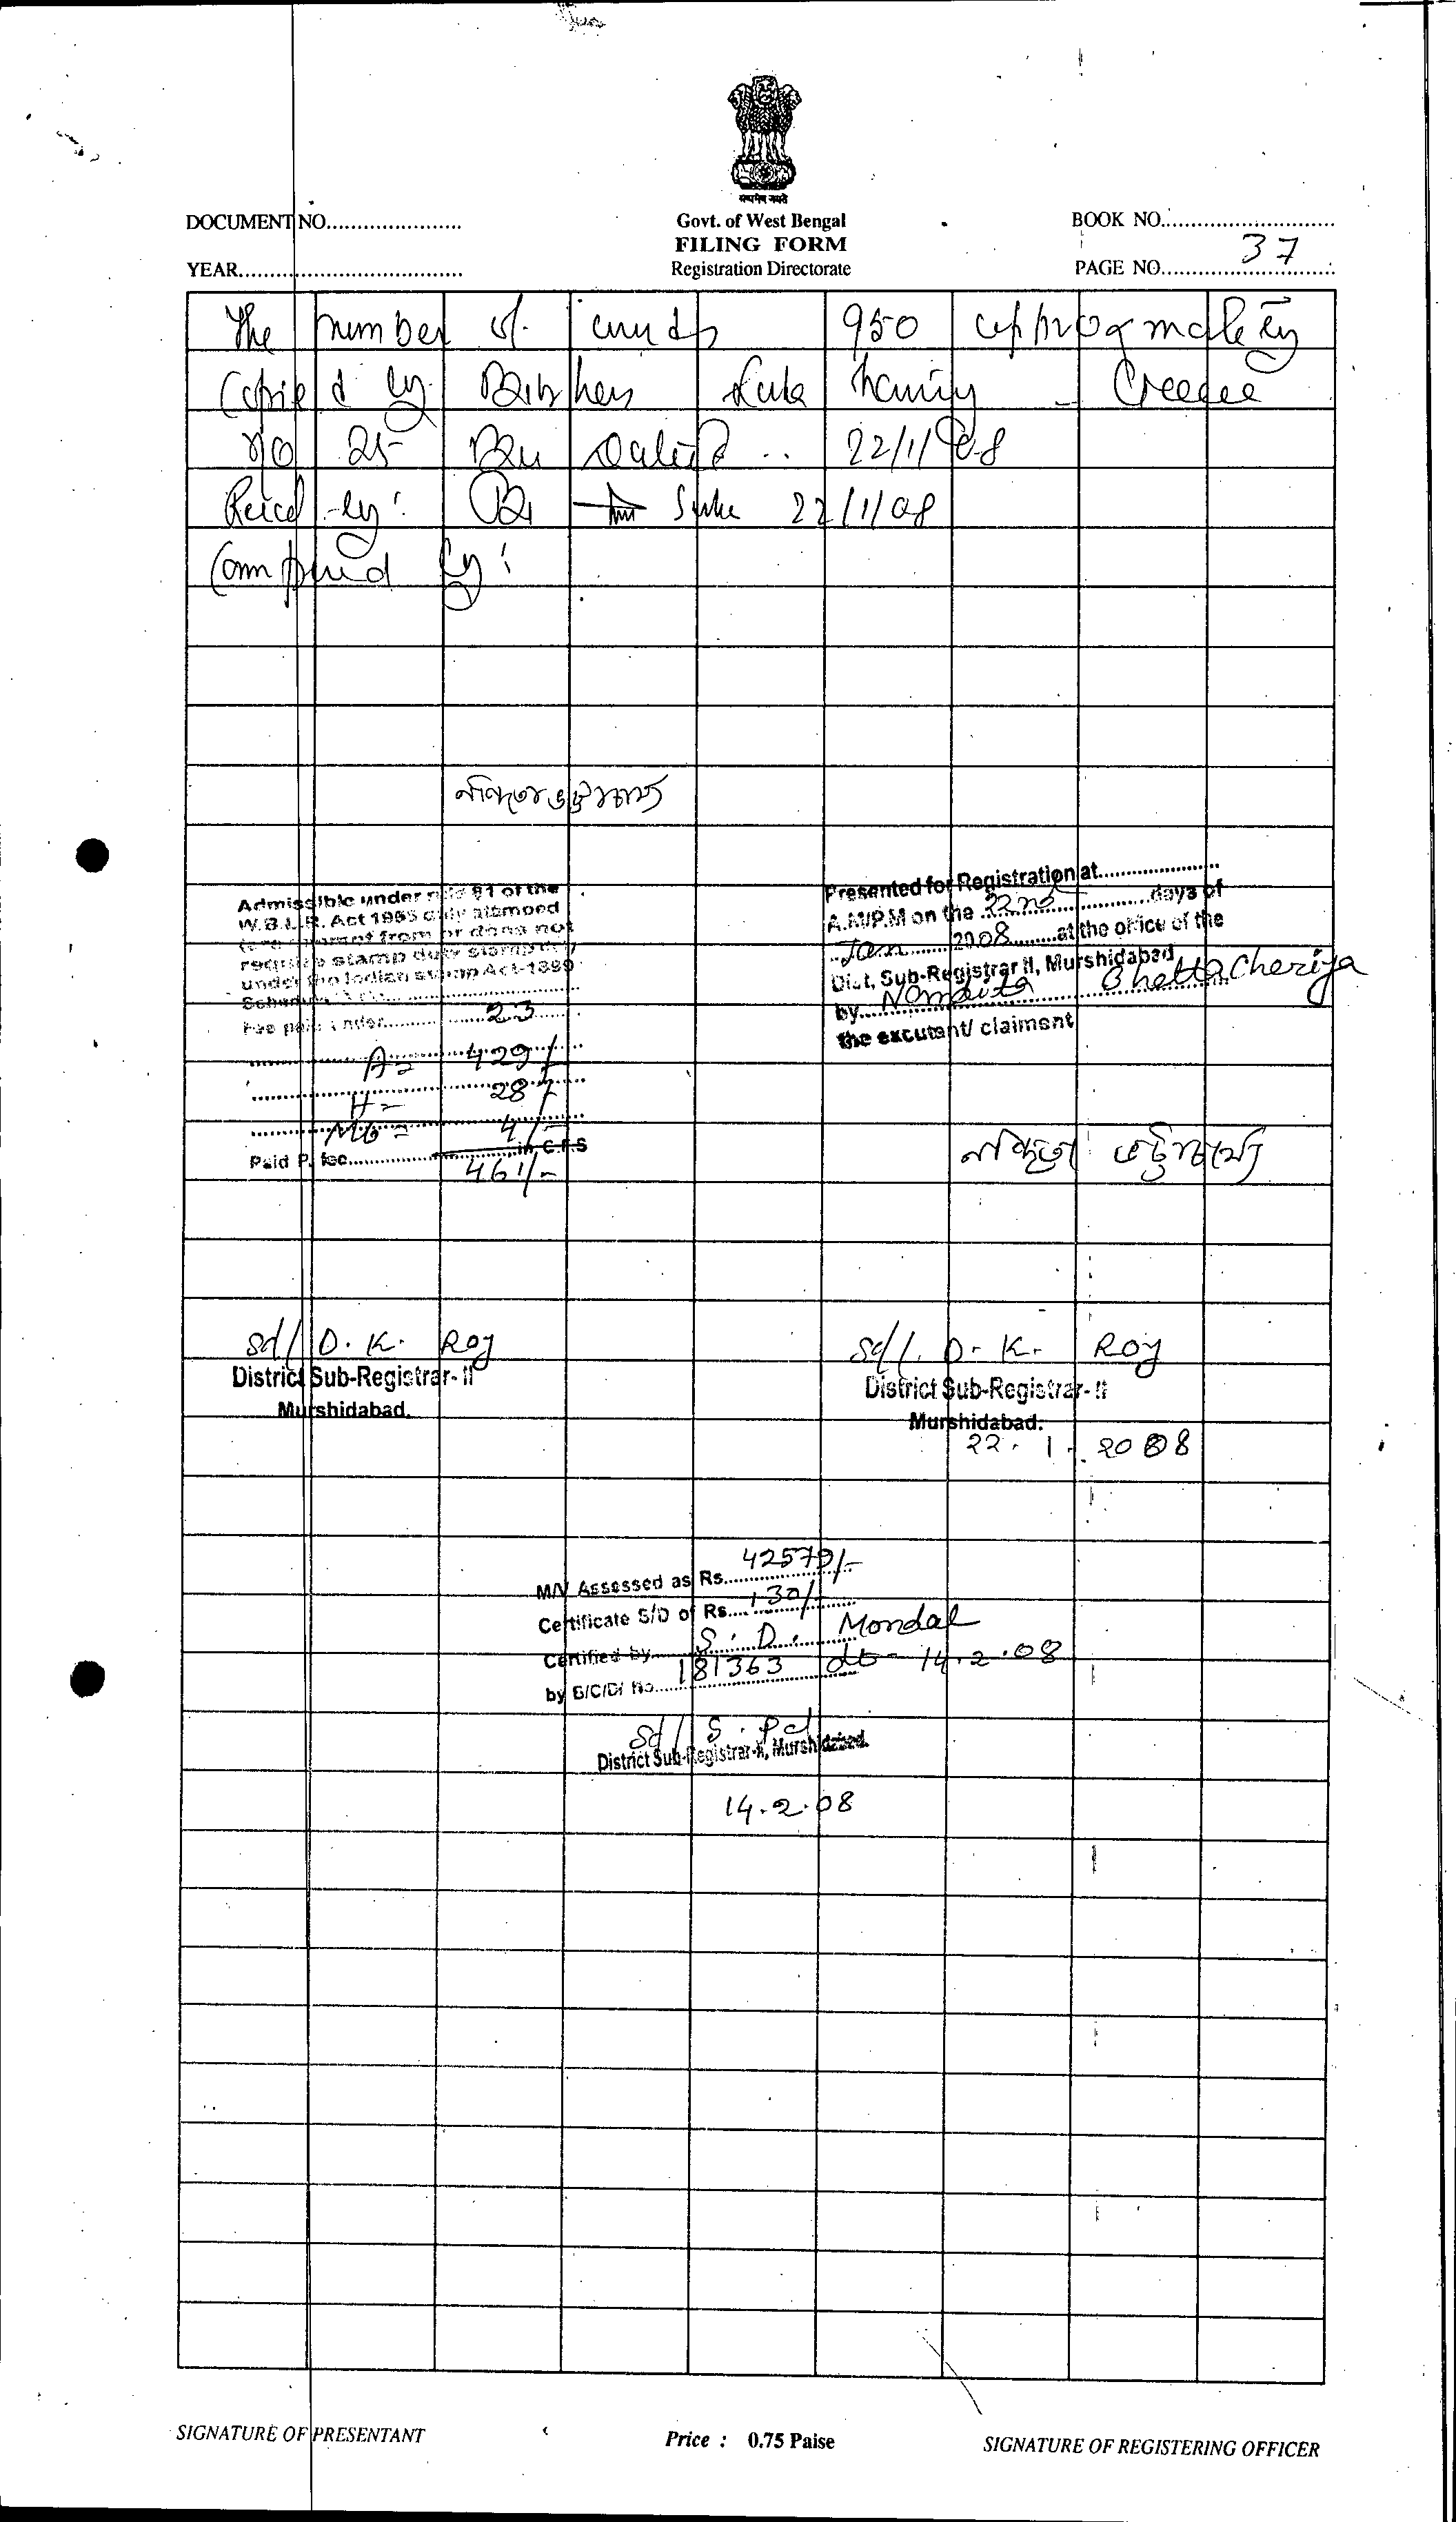 सत्यमेव जयते
DOCUMENT NO......................
Govt. of West Bengal
BOOK NO.............................
FILING FORM
YEAR.....................................
Registration Directorate
PAGE NO. 37
The number of 950
Copied by
No 25 22/1/08
Read by: 22/1/08
by:
Admissible under rule 21 of the
W.B.L.R. Act 1955 duly stamped
from or does not
require stamp duty
under the Indian stamp Act-1899
Fee paid under 23
A = 429/-
H = 28/-
Mb = 4/-
Paid P. fee in C.F.S
461/-
Presented for Registration at....................
A.M/P.M on the 22nd days of
Jan 2008 at the office of the
Dist. Sub-Registrar II, Murshidabad
by Nandita Bhattacheriya
the excutant/ claiment
sd/ D. K. Roy
District Sub-Registrar-II
Murshidabad.
sd/. D. K. Roy
District Sub-Registrar-II
Murshidabad.
22. 1. 2008
M/V Assessed as Rs. 42579/-
Certificate S/D of Rs. 130/-
Certified by S. D. Mondal
by B/C/D/ No. 181363 dt- 14.2.08
sd/ S. Pal
District Sub-Registrar-II, Murshidabad.
14.2.08
SIGNATURE OF PRESENTANT
Price : 0.75 Paise
SIGNATURE OF REGISTERING OFFICER